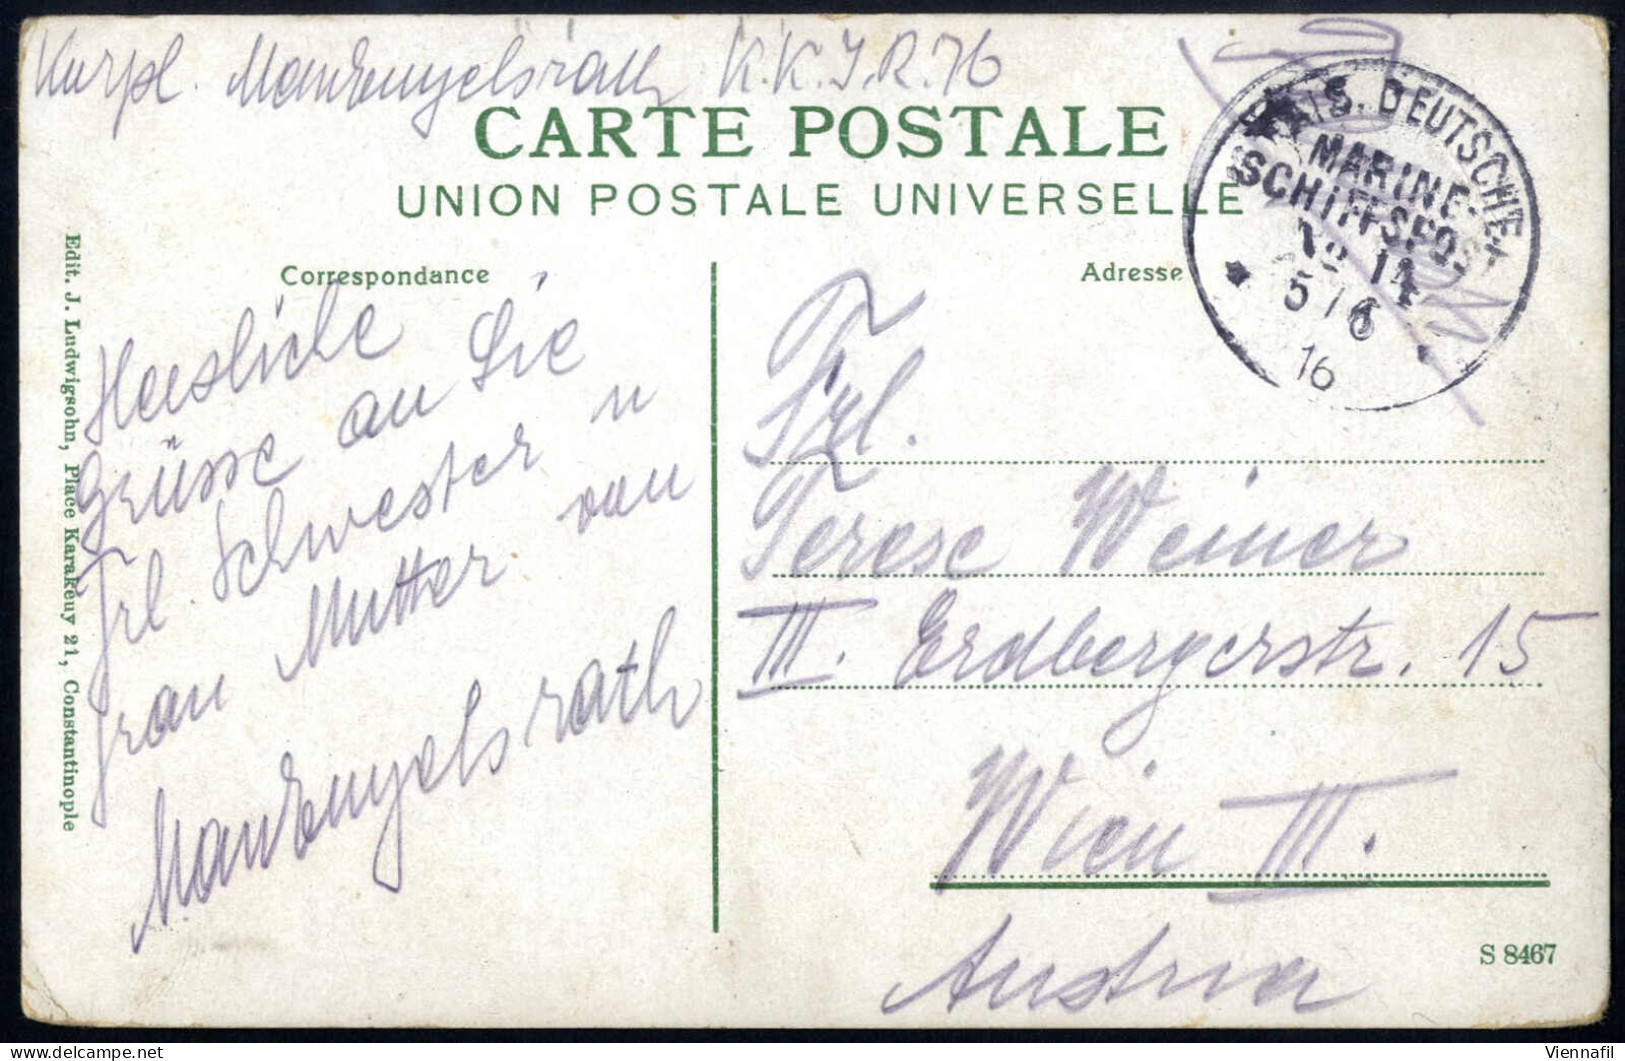 Kurpl. Mankengelsrath K.K.I.R. 76
CARTE POSTALE
UNION POSTALE UNIVERSELLE
KAIS. DEUTSCHE
MARINE-
SCHIFFSPOST
No 14
5/6
16
Correspondance
Adresse
Herzliche
Grüsse an Sie
Frl. Schwester u
Frau Mutter von
Mankengelsrath
Frl.
Terese Weiner
III. Erdbergerstr. 15
Wien III.
Austria
Edit. J. Ludwigsohn, Place Karakeuy 21, Constantinople
S 8467
Viennafil